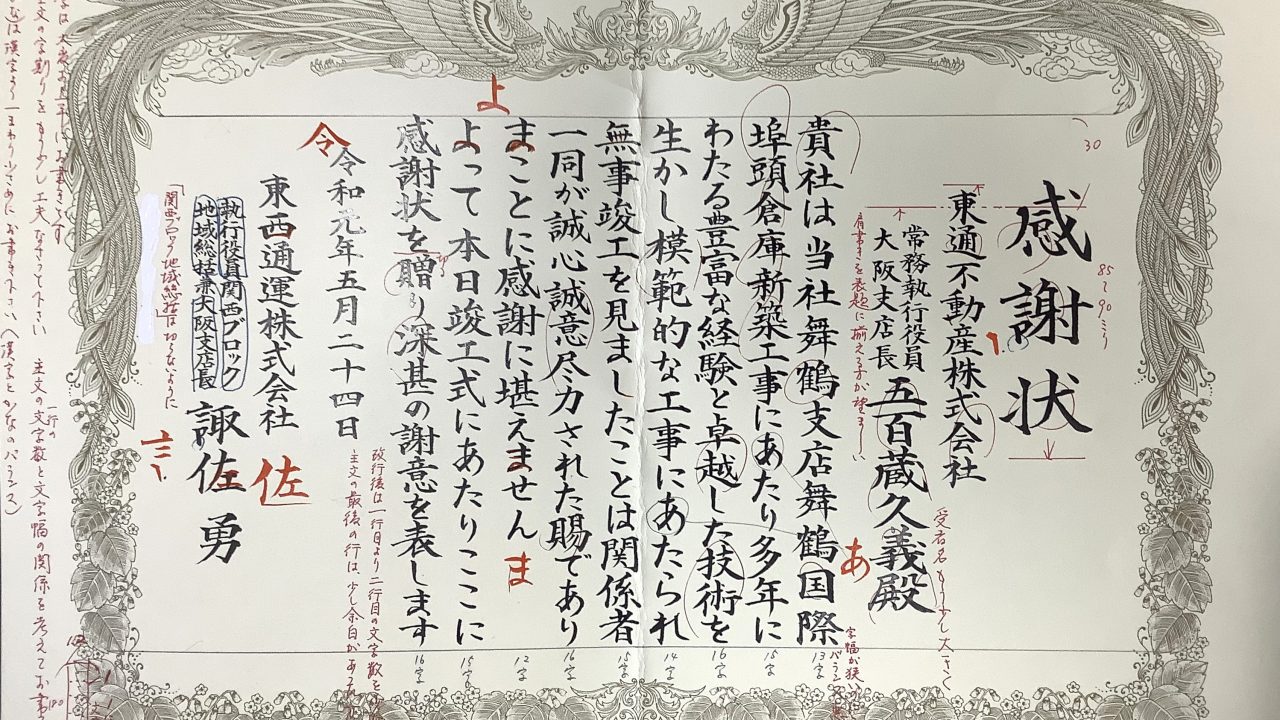 感謝状
東通不動産株式会社
常務執行役員
大阪支店長
五百蔵久義殿
貴社は当社舞鶴支店舞鶴国際
埠頭倉庫新築工事にあたり多年に
わたる豊富な経験と卓越した技術を
生かし模範的な工事にあたられ
無事竣工を見ましたことは関係者
一同が誠心誠意尽力された賜であり
まことに感謝に堪えません
よって本日竣工式にあたりここに
感謝状を贈り深甚の謝意を表します
令和元年五月二十四日
東西通運株式会社
執行役員関西ブロック
地域総括兼大阪支店長
諏佐勇
30
85〜90ミリ
受者名もう少し大きく
肩書きを表題に揃える方が望ましい
あ
よ
ま
令
佐
13字
15字
16字
14字
15字
16字
12字
15字
16字
改行後は一行目より二行目の文字数を
主文の最後の行は、少し余白が
「関西ブロック地域総括」は切らないように
主文の文字数と文字幅の関係を考えてお書
一行の
主文の字割りをもう少し工夫なさって下さい